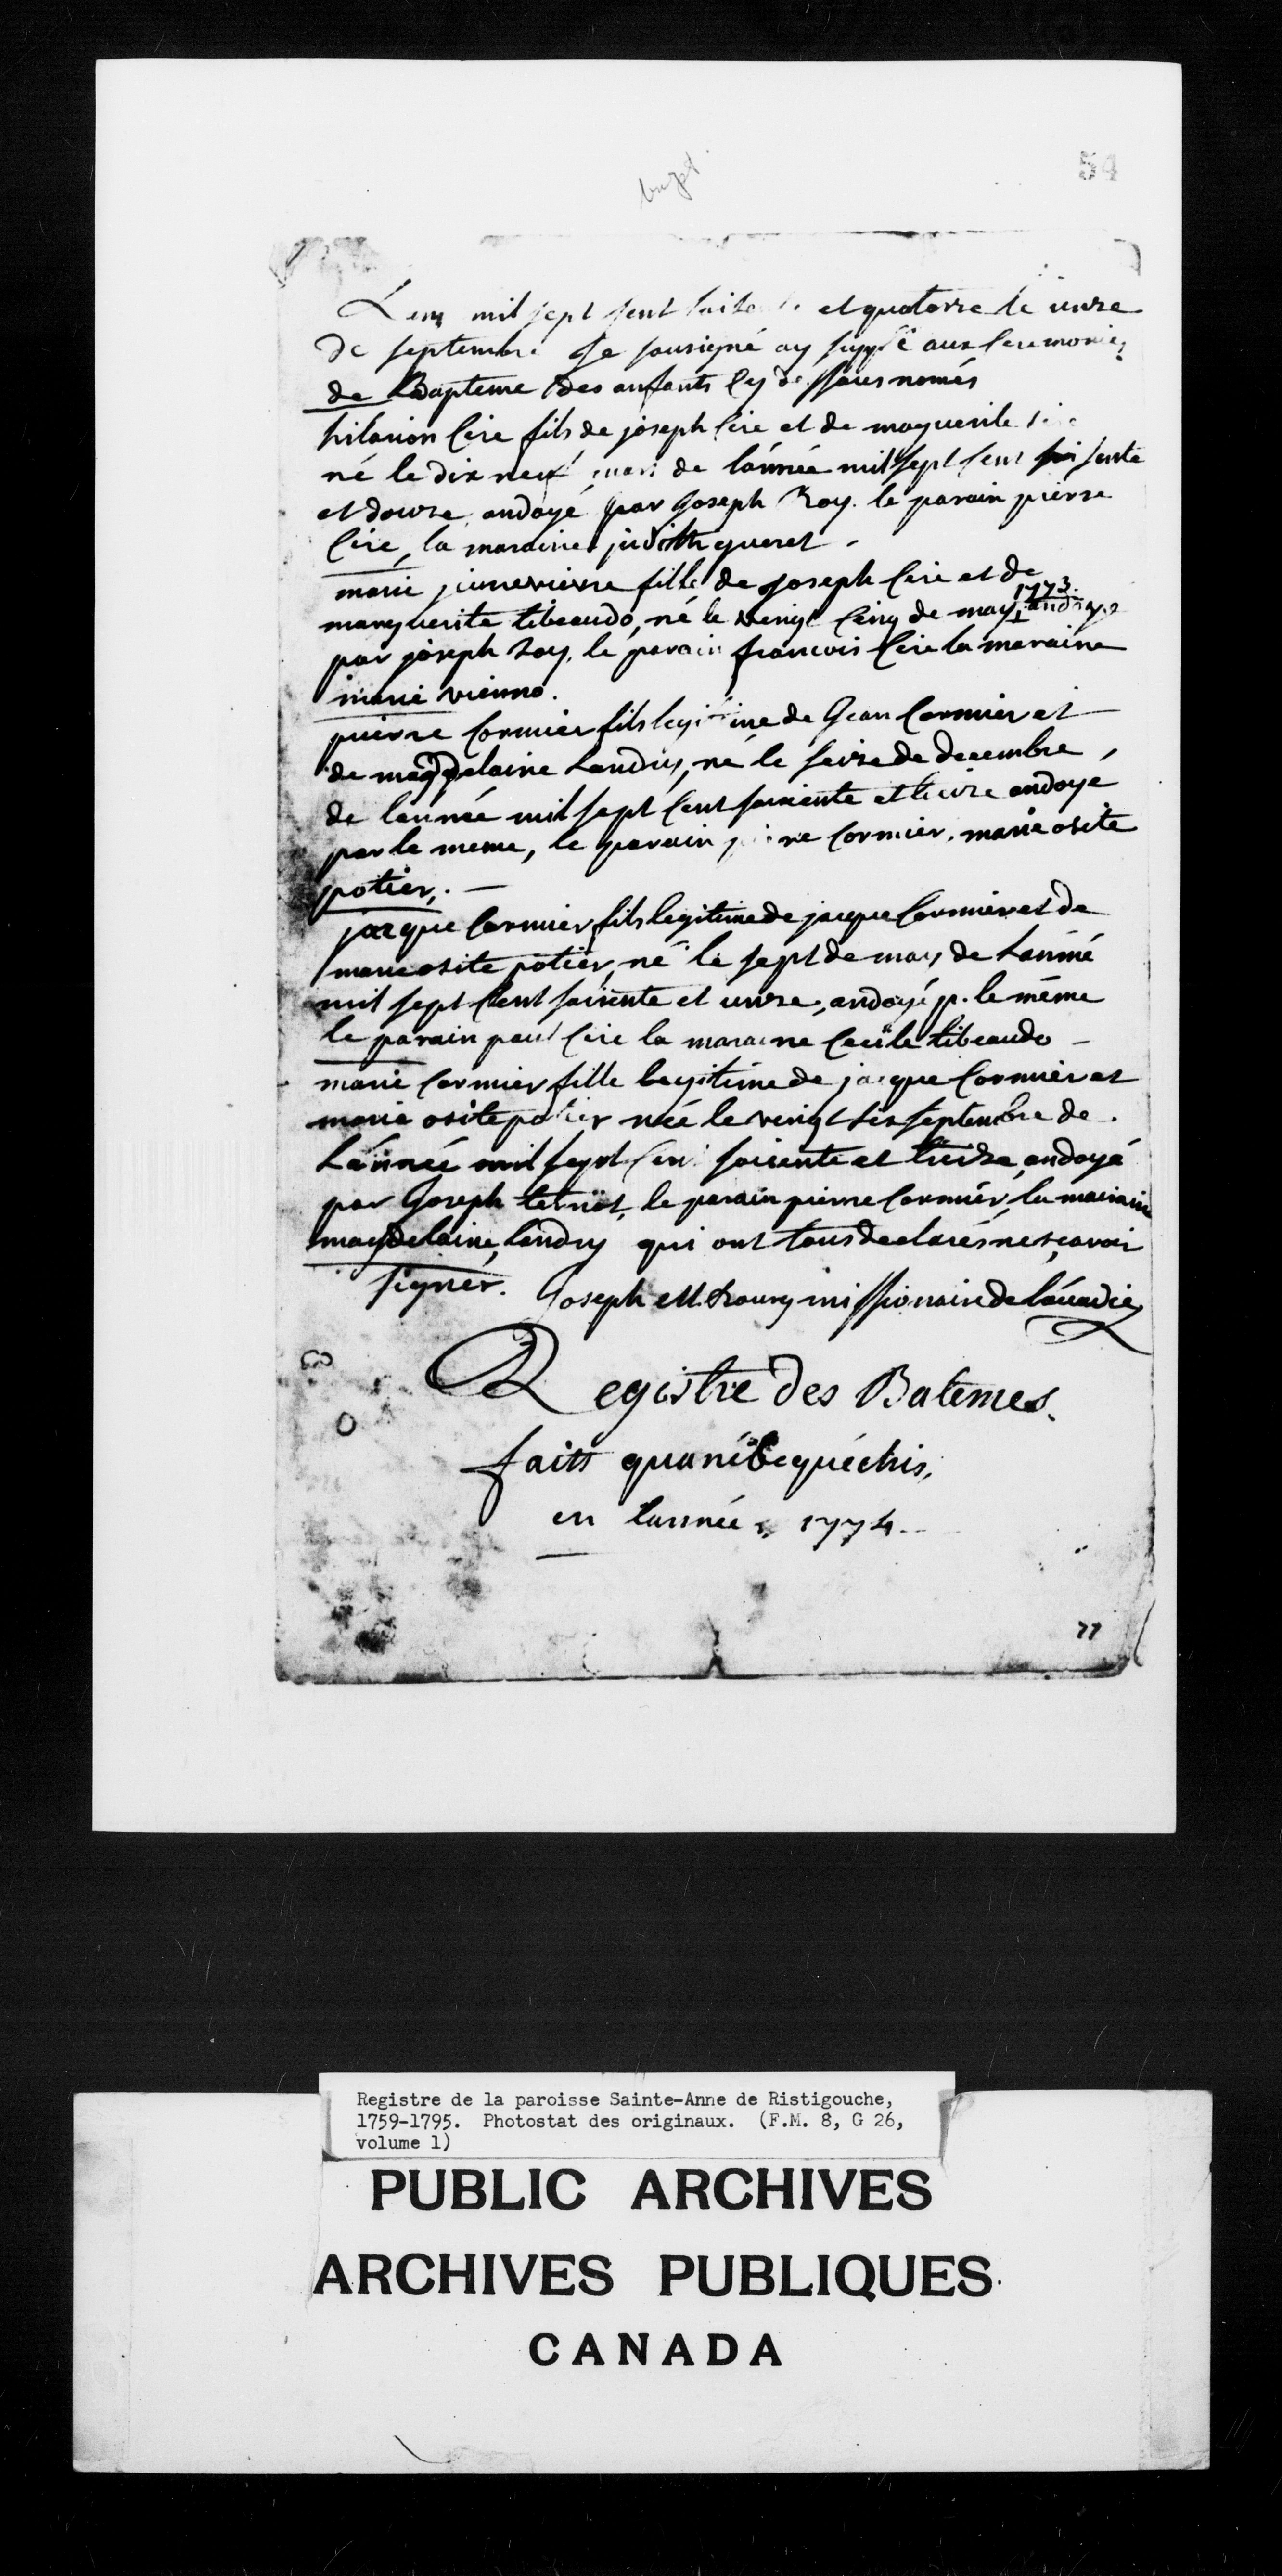 54
bapt.
Lem mil sept sent soisente et quatorze le unze
de septembre Je sousigné ay supplé aux ceremonies
de Bapteme des anfants cy dessous només
hilarion Cire fils de joseph Cire et de maguerite
né le dix neuf mars de lánnée mil sept sent soisente
et douze andoyé par Joseph Roy. le parain pierre
Cire, la maraine judith queret.
marie jinnevievre fille de joseph Cire et de
marguerite tibeaudo, né le vingt cinq de may 1773. andoyé
par joseph Roy, le parain francois Cire la maraine
marie vienno.
pierre Cormier fils legitime de Gean Cormier et
de magdelaine Landry, né le seize de decembre,
de lannée mil sept Cent soixente et treize andoye
par le meme, le parain pierre Cormier, marie osite
potier. -
jacque Cormier fils legitime de jacque Cormier et de
marie osite potier, né le sept de may de Lanné
mil sept Cent soixente et unze, andoyé p. le méme
le parain paul Cire la maraine Cecile tibeaudo -
marie Cormier fille legitime de jacque Cormier et
marie osite potier née le vingt sis septembre de
Lánnée mil sept Cent soixente et treize, andoyé
par Joseph , le parain pierre Cormiér, la maraine
magdelaine landry qui ont tous declarés ne sçavoir
signer. Joseph M. Bourg missionaire de lácadie
Registre des Batemes
faits quanibequéchis,
en lannée 1774.
77
Registre de la paroisse Sainte-Anne de Ristigouche,
1759-1795. Photostat des originaux. (F.M. 8, G 26,
volume 1)
PUBLIC ARCHIVES
ARCHIVES PUBLIQUES
CANADA